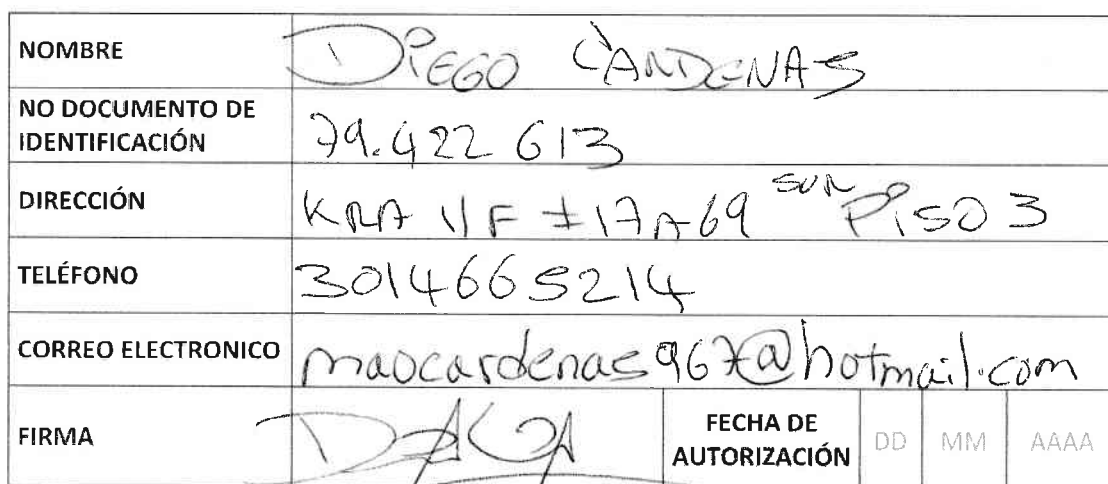 NOMBRE DIEGO CARDENAS
NO DOCUMENTO DE
IDENTIFICACIÓN 79.422 613
DIRECCIÓN KRA 11F #17A69 SUR PISO 3
TELÉFONO 3014665214
CORREO ELECTRONICO maocardenas967@hotmail.com
FIRMA FECHA DE
AUTORIZACIÓN DD MM AAAA